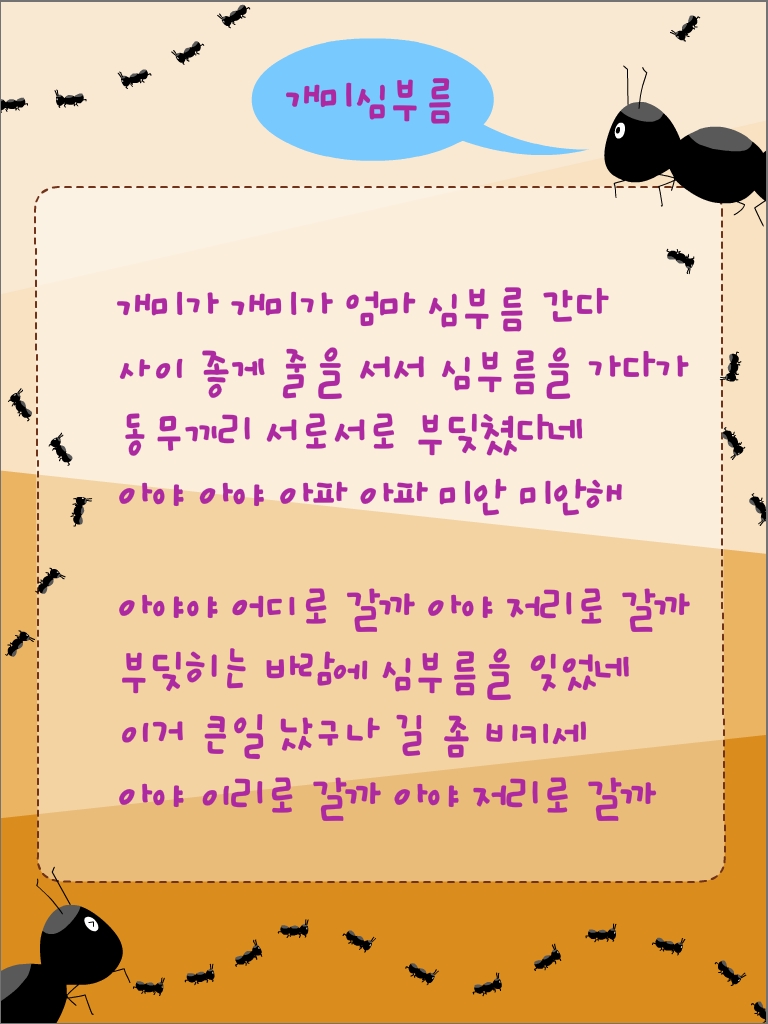 개미심부름
개미가 개미가 엄마 심부름 간다
사이 좋게 줄을 서서 심부름을 가다가
동무끼리 서로서로 부딪쳤다네
아야 아야 아파 아파 미안 미안해
아야야 어디로 갈까 아야 저리로 갈까
부딪히는 바람에 심부름을 잊었네
이거 큰일 났구나 길 좀 비키세
아야 이리로 갈까 아야 저리로 갈까